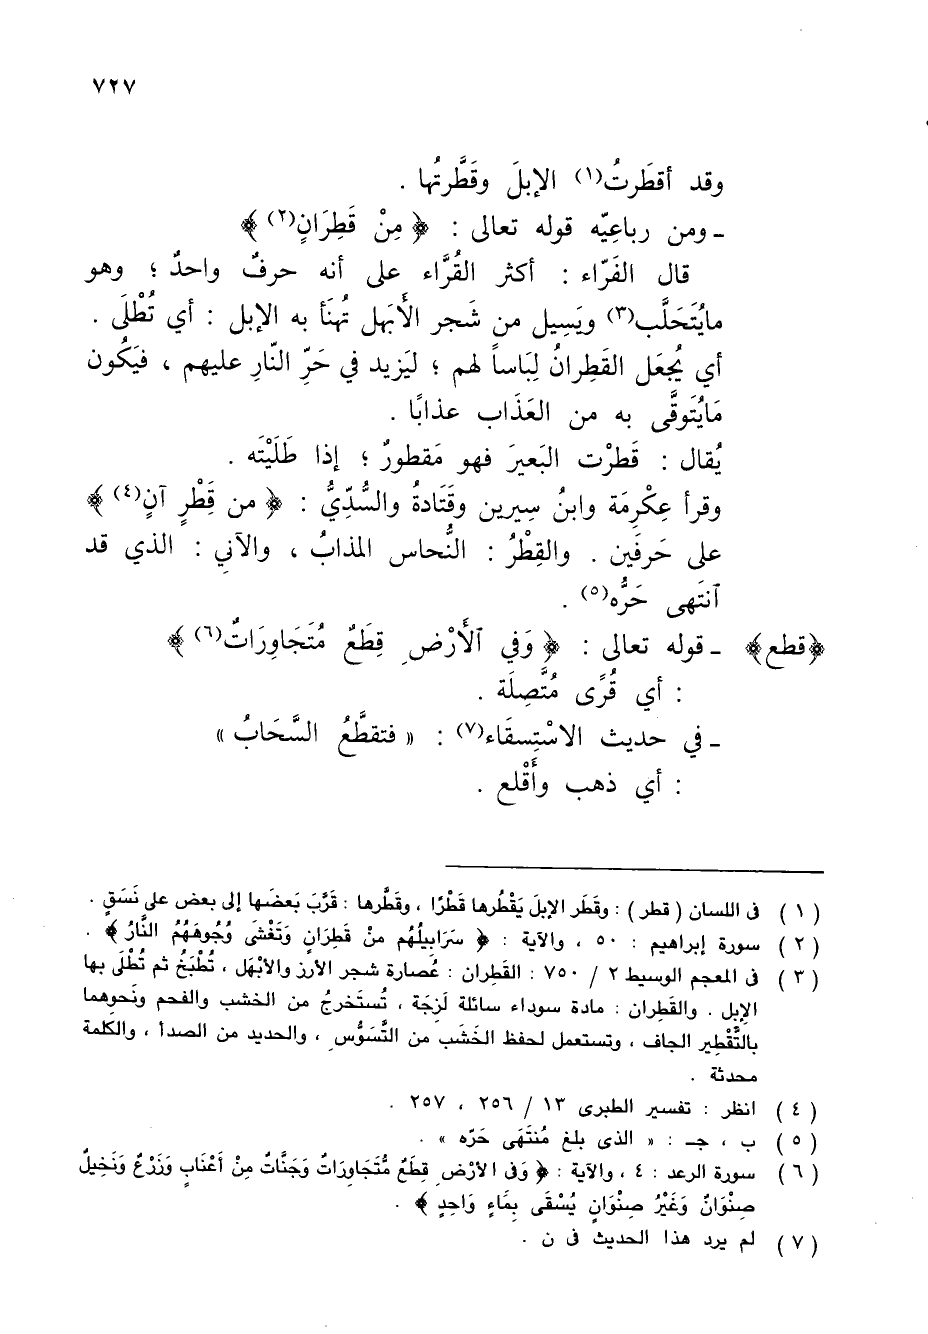 ٧٢٧
وقد أقطَرتُ(١) الإبلَ وقَطَّرتُها .
ـ ومن رباعِيّه قوله تعالى : ﴿ مِنْ قَطِرَانٍ(٢) ﴾
قال الفَرّاء : أكثر القُرَّاء على أنه حرفٌ واحدٌ ؛ وهو
مايُتَحلَّب(٣) ويَسِيل من شَجر الأَبَهل تُهنَأ به الإبل : أي تُطْلَى .
أي يُجعَل القَطِرانُ لِبَاساً لهم ؛ ليَزيد في حَرِّ النّارِ عليهم ، فيَكُون
مَايُتَوقَّى به من العَذَاب عذابًا .
يُقال : قَطرْت البَعيرَ فهو مَقطورٌ ؛ إذا طَلَيْتَه .
وقرأ عِكْرِمَة وابنُ سِيرين وقَتَادةُ والسُّدِّيُّ : ﴿ من قِطْرٍ آنٍ(٤) ﴾
على حَرفَين . والقِطْرُ : النُّحاس المذابُ ، والآني : الذي قد
ٱنتَهى حَرُّه(٥) .
﴿قطع﴾ ـ قوله تعالى : ﴿ وَفِي ٱلأَرْضِ قِطَعٌ مُتَجَاوِرَاتٌ(٦) ﴾
: أي قُرًى مُتَّصِلَة .
ـ في حديث الاسْتِسقَاء(٧) : « فتقطَّعُ السَّحَابُ »
: أي ذهب وأَقْلع .
( ١ ) فى اللسان ( قطر ) : وقَطَر الإبلَ يَقْطُرها قَطْرًا ، وقَطَّرها : قَرَّبَ بَعضَها إلى بعض على نَسَقٍ .
( ٢ ) سورة إبراهيم : ٥٠ ، والآية : ﴿ سَرَابِيلُهُم مِنْ قَطِرَانٍ وَتَغْشَى وُجُوهَهُمُ النَّارُ ﴾ .
( ٣ ) فى المعجم الوسيط ٢ / ٧٥٠ : القَطِران : عُصارة شجر الأرز والأبْهَل ، تُطْبَخُ ثم تُطْلَى بها
الإبل . والقَطِران : مادة سوداء سائلة لَزِجَة ، تُستَخرجُ من الخشب والفحم ونَحوهما
بالتَّقْطِيرِ الجاف ، وتستعمل لحفظ الخشَب من التَّسَوُّس ، والحديد من الصدأ ، والكلمة
محدثة .
( ٤ ) انظر : تفسير الطبرى ١٣ / ٢٥٦ ، ٢٥٧ .
( ٥ ) ب ، جـ : « الذى بلغ مُنتَهَى حَرّه » .
( ٦ ) سورة الرعد : ٤ ، والآية : ﴿ وَفى الأرْضِ قِطَعٌ مُّتَجَاوِرَاتٌ وَجَنَّاتٌ مِنْ أَعْنَابٍ وَزَرْعٌ وَنَخِيلٌ
صِنْوَانٌ وَغَيْرُ صِنْوَانٍ يُسْقَى بِمَاءٍ وَاحِدٍ ﴾ .
( ٧ ) لم يرد هذا الحديث فى ن .